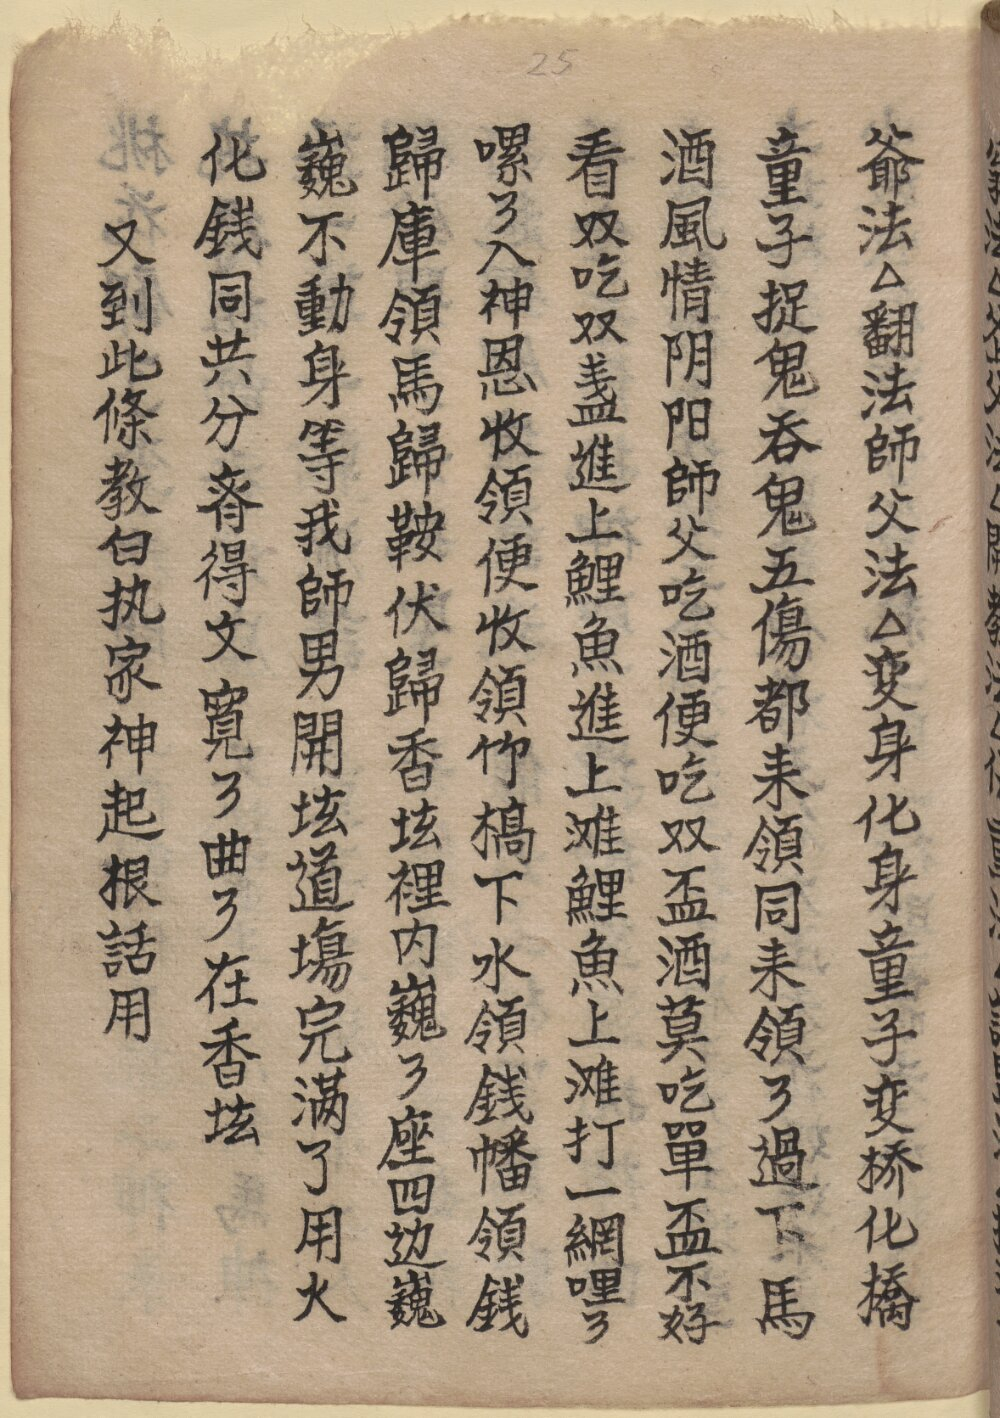 25
爺法△翻法師父法△变身化身童子变桥化橋
童子捉鬼吞鬼五傷都耒領同耒領了過下馬
酒風情阴阳師父吃酒便吃双盃酒莫吃單盃不好
看双吃双盞進上鯉魚進上滩鯉魚上滩打一網哩了
嘿了入神恩收領便收領竹槁下水領銭幡領銭
歸庫領馬歸鞍伏歸香坛裡内巍了座四边巍
巍不動身等我師男開坛道塲完满了用火
化銭同共分齊得文寬了曲了在香坛
又到此條教白执家神起根話用